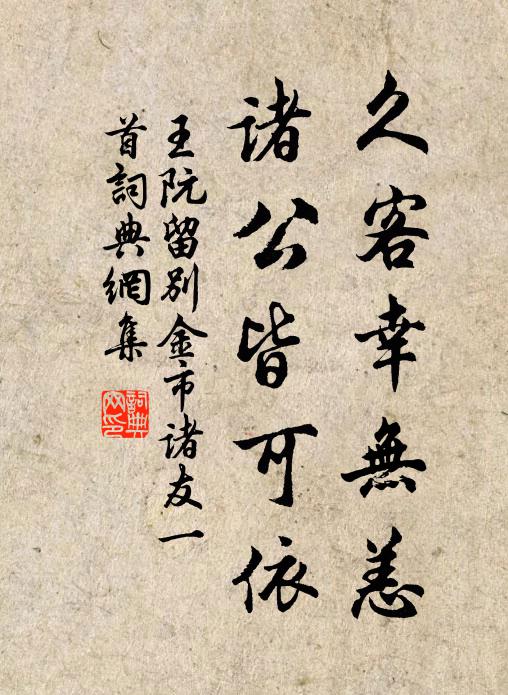 久客幸無恙
諸公皆可依
王阮留別金市諸友一
首詞典網集
詞典
网印